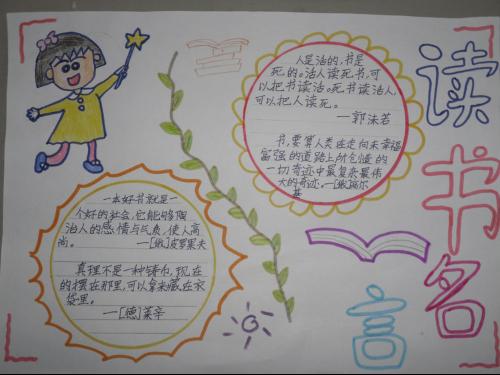 读书名言
人是活的,书是
死的。活人读死书,可
以把书读活。死书读活人,
可以把人读死。
—郭沫若
书,要算人类在走向未来幸福
富强的道路上所创造的
一切奇迹中最复杂最伟
大的奇迹。—[俄]高尔
基
一本好书就是一
个好的社会,它能够陶
冶人的感情与气质,使人高
尚。—[俄]皮罗果夫
真理不是一种铸币,现在
的摆在那里,可以拿来藏在衣
袋里。
—[德]莱辛